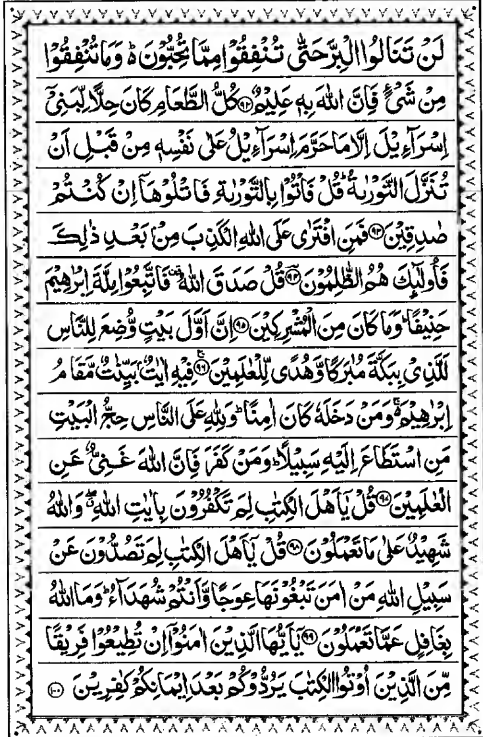 لَنْ تَنَالُوا الْبِرَّ حَتّٰى تُنْفِقُوْا مِمَّا تُحِبُّوْنَ ؕ وَمَا تُنْفِقُوْا
مِنْ شَىْءٍ فَاِنَّ اللّٰهَ بِهٖ عَلِيْمٌ ﴿۹۲﴾ كُلُّ الطَّعَامِ كَانَ حِلًّا لِّبَنِىْۤ
اِسْرَآءِيْلَ اِلَّا مَا حَرَّمَ اِسْرَآءِيْلُ عَلٰى نَفْسِهٖ مِنْ قَبْلِ اَنْ
تُنَزَّلَ التَّوْرٰىةُ ؕ قُلْ فَاْتُوْا بِالتَّوْرٰىةِ فَاتْلُوْهَاۤ اِنْ كُنْتُمْ
صٰدِقِيْنَ ﴿۹۳﴾ فَمَنِ افْتَرٰى عَلَى اللّٰهِ الْكَذِبَ مِنْۢ بَعْدِ ذٰلِكَ
فَاُولٰٓئِكَ هُمُ الظّٰلِمُوْنَ ﴿۹۴﴾ قُلْ صَدَقَ اللّٰهُ فَاتَّبِعُوْا مِلَّةَ اِبْرٰهِيْمَ
حَنِيْفًا ؕ وَمَا كَانَ مِنَ الْمُشْرِكِيْنَ ﴿۹۵﴾ اِنَّ اَوَّلَ بَيْتٍ وُّضِعَ لِلنَّاسِ
لَلَّذِىْ بِبَكَّةَ مُبٰرَكًا وَّهُدًى لِّلْعٰلَمِيْنَ ﴿۹۶﴾ فِيْهِ اٰيٰتٌۢ بَيِّنٰتٌ مَّقَامُ
اِبْرٰهِيْمَ ۚ وَمَنْ دَخَلَهٗ كَانَ اٰمِنًا ؕ وَلِلّٰهِ عَلَى النَّاسِ حِجُّ الْبَيْتِ
مَنِ اسْتَطَاعَ اِلَيْهِ سَبِيْلًا ؕ وَمَنْ كَفَرَ فَاِنَّ اللّٰهَ غَنِىٌّ عَنِ
الْعٰلَمِيْنَ ﴿۹۷﴾ قُلْ يٰۤاَهْلَ الْكِتٰبِ لِمَ تَكْفُرُوْنَ بِاٰيٰتِ اللّٰهِ ۖ وَاللّٰهُ
شَهِيْدٌ عَلٰى مَا تَعْمَلُوْنَ ﴿۹۸﴾ قُلْ يٰۤاَهْلَ الْكِتٰبِ لِمَ تَصُدُّوْنَ عَنْ
سَبِيْلِ اللّٰهِ مَنْ اٰمَنَ تَبْغُوْنَهَا عِوَجًا وَّاَنْتُمْ شُهَدَآءُ ؕ وَمَا اللّٰهُ
بِغَافِلٍ عَمَّا تَعْمَلُوْنَ ﴿۹۹﴾ يٰۤاَيُّهَا الَّذِيْنَ اٰمَنُوْۤا اِنْ تُطِيْعُوْا فَرِيْقًا
مِّنَ الَّذِيْنَ اُوْتُوا الْكِتٰبَ يَرُدُّوْكُمْ بَعْدَ اِيْمَانِكُمْ كٰفِرِيْنَ ﴿۱۰۰﴾